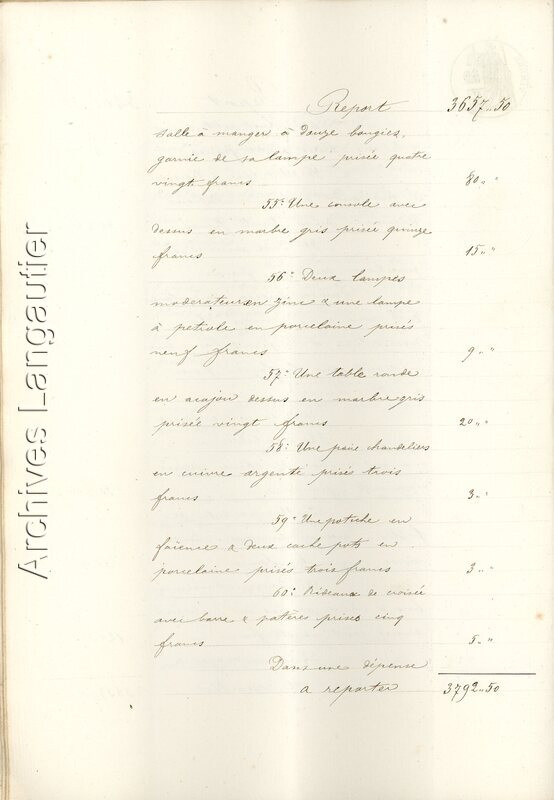 Report 3657,,50
salle a manger à douze bougies,
garnie de sa lampe prisée quatre
vingt francs 80,, "
55° Une console avec
dessus en marbre gris prisée quinze
francs 15,, "
56° Deux lampes
moderateur en zinc & une lampe
à petrole en porcelaine prisés
neuf francs 9,, "
57° Une table ronde
en acajou dessus en marbre gris
prisée vingt francs 20,, "
58° Une paire chandeliers
en cuivre argenté prisés trois
francs 3,, "
59° Une potiche en
faïence & deux cache pots en
porcelaine prisés trois francs 3,, "
60° Rideaux de croisée
avec barre & patère prisés cinq
francs 5,, "
Dans une dépense
a reporter 3792,,50
Archives Langautier